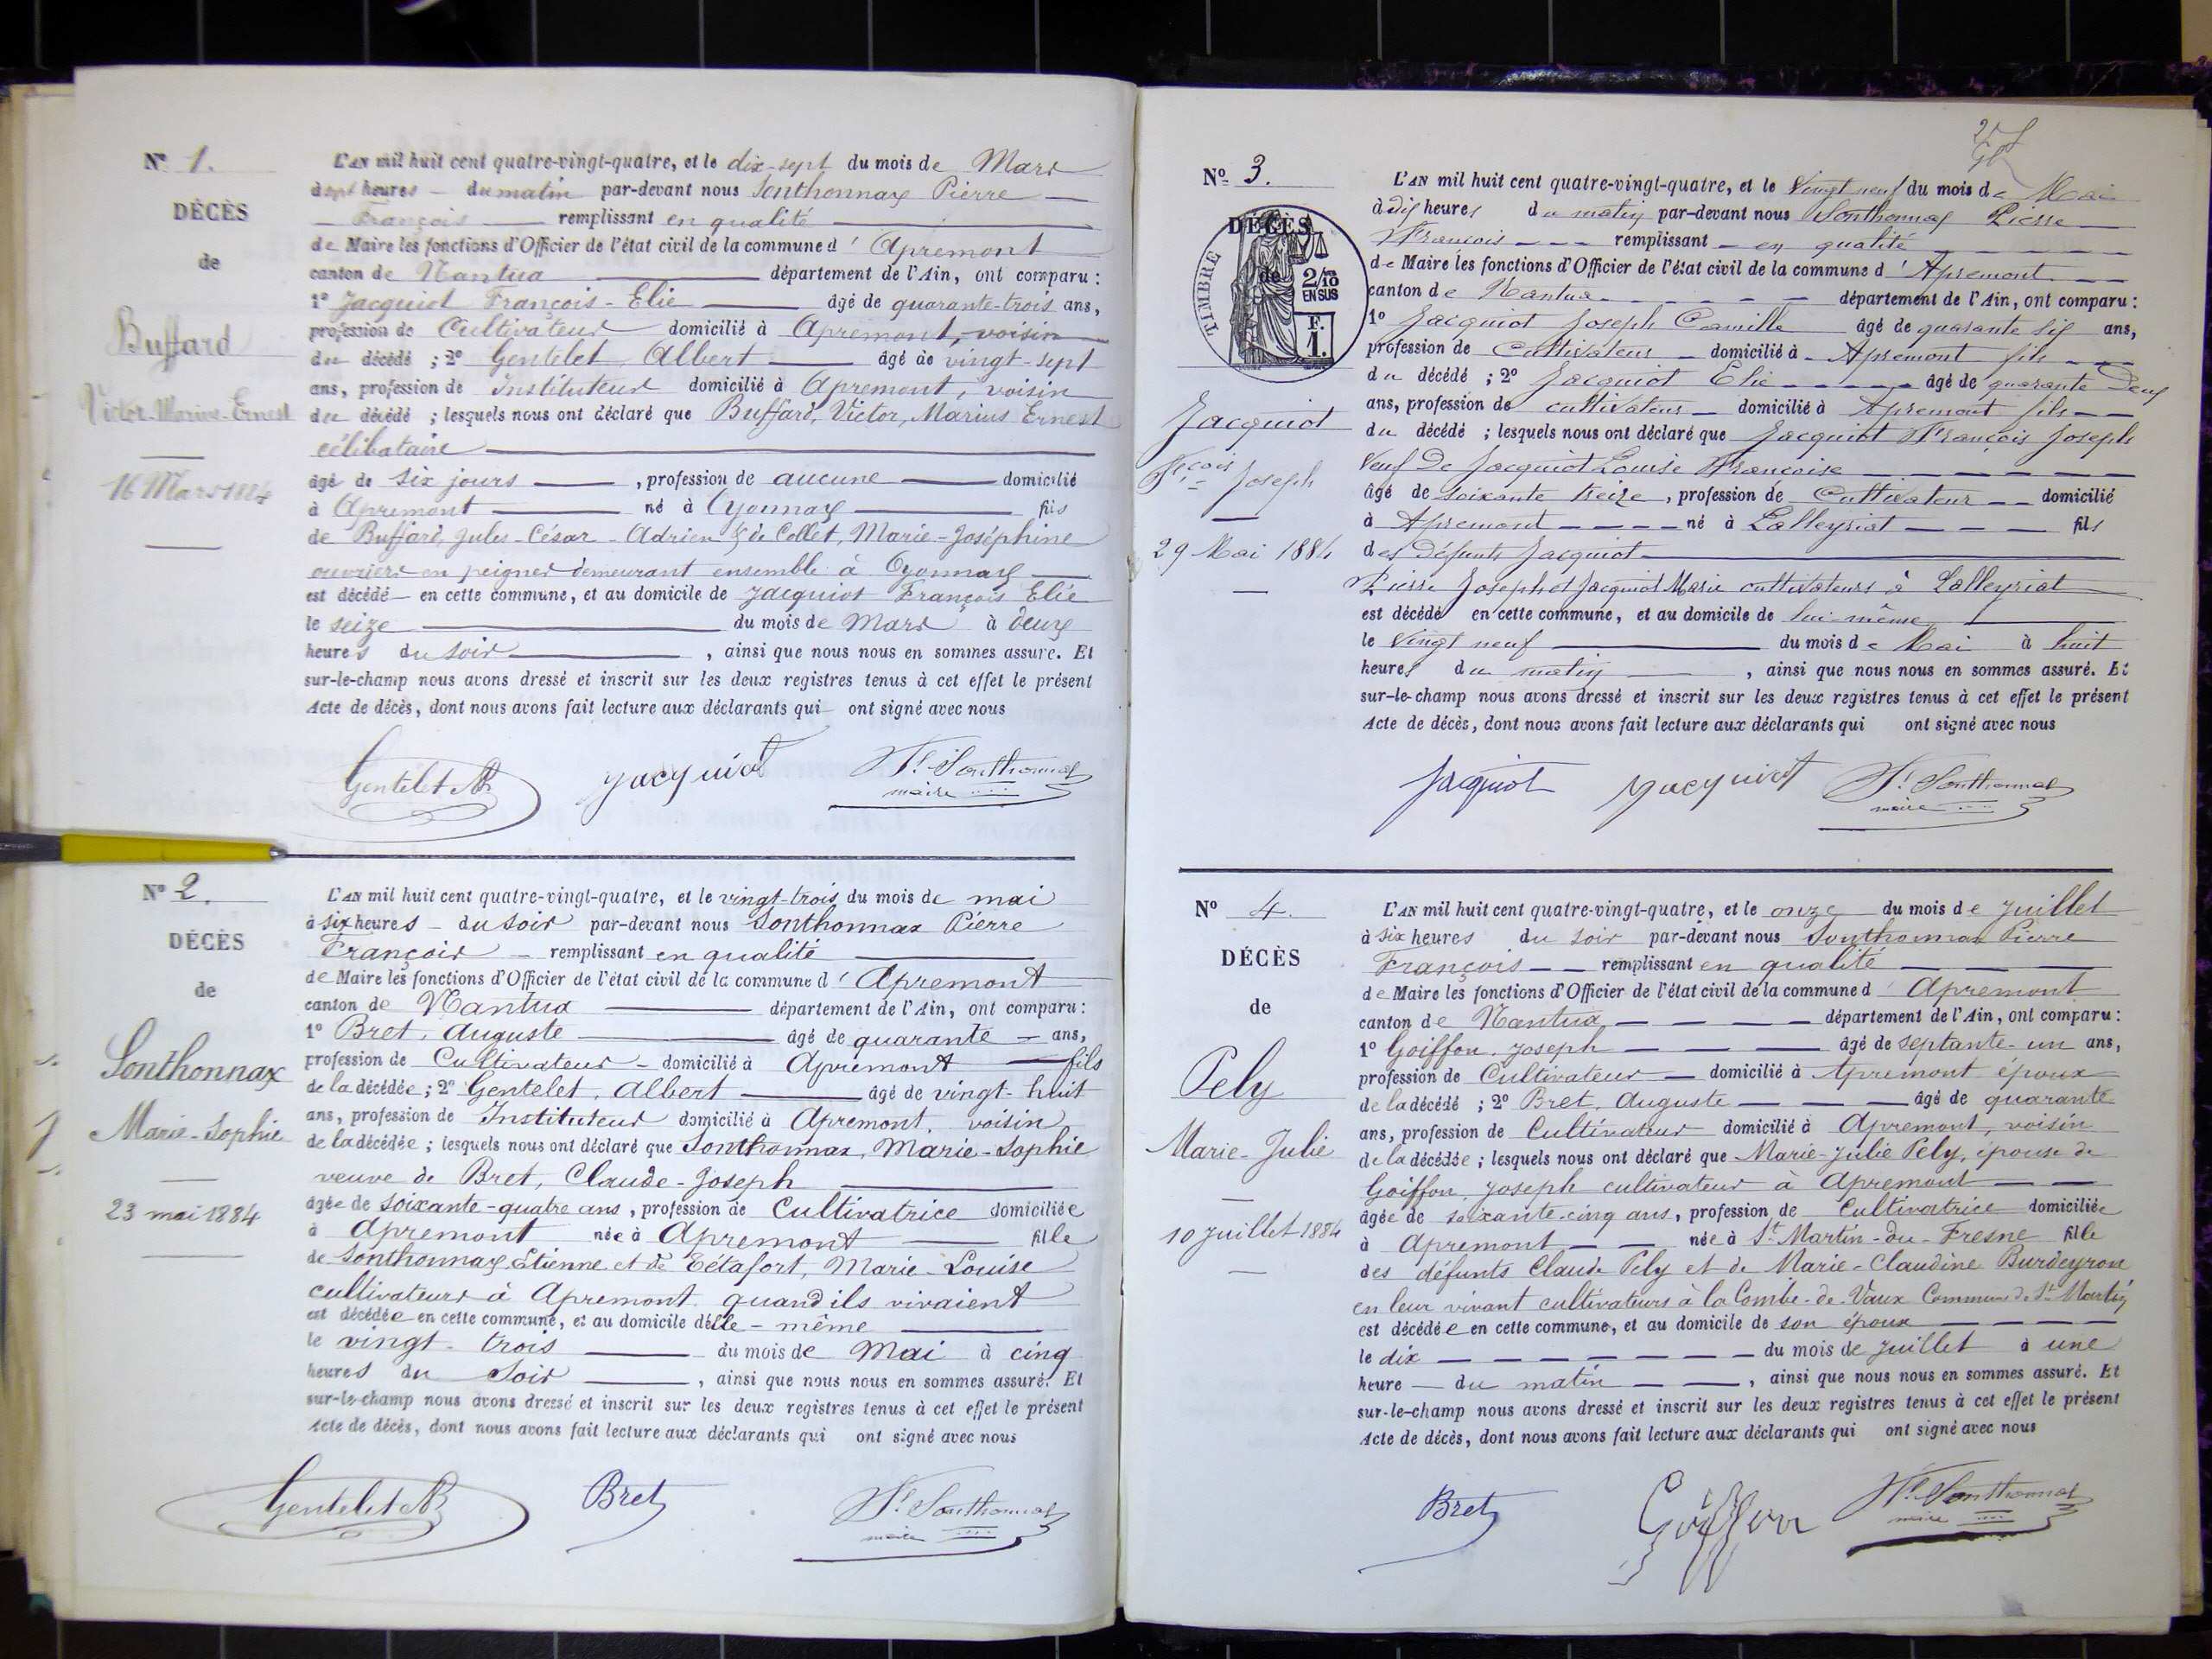 Nº 1.
DÉCÈS
de
Buffard
Victor-Marius-Ernest
16 Mars 1884
L'AN mil huit cent quatre-vingt-quatre, et le dix-sept du mois de Mars
à sept heures du matin par-devant nous Sonthonnax Pierre
François remplissant en qualité
de Maire les fonctions d'Officier de l'état civil de la commune d'Apremont
canton de Nantua département de l'Ain, ont comparu :
1º Jacquiot François-Elie âgé de quarante-trois ans,
profession de Cultivateur domicilié à Apremont, voisin
du décédé ; 2º Gentelet Albert âgé de vingt-sept
ans, profession de Instituteur domicilié à Apremont, voisin
du décédé ; lesquels nous ont déclaré que Buffard, Victor, Marius Ernest
célibataire
âgé de six jours, profession de aucune domicilié
à Apremont né à Oyonnax fils
de Buffard, Jules-César-Adrien & de Collet, Marie-Joséphine
ouvriers en peignes demeurant ensemble à Oyonnax
est décédé en cette commune, et au domicile de Jacquiot François Elie
le seize du mois de Mars à deux
heures du soir, ainsi que nous nous en sommes assuré. Et
sur-le-champ nous avons dressé et inscrit sur les deux registres tenus à cet effet le présent
Acte de décès, dont nous avons fait lecture aux déclarants qui ont signé avec nous
Gentelet Jacquiot Sonthonnax
maire
Nº 2.
DÉCÈS
de
Sonthonnax
Marie-Sophie
23 mai 1884
L'AN mil huit cent quatre-vingt-quatre, et le vingt-trois du mois de mai
à six heures du soir par-devant nous Sonthonnax Pierre
François remplissant en qualité
de Maire les fonctions d'Officier de l'état civil de la commune d'Apremont
canton de Nantua département de l'Ain, ont comparu :
1º Bret, Auguste âgé de quarante ans,
profession de Cultivateur domicilié à Apremont fils
de la décédée ; 2º Gentelet, Albert âgé de vingt-huit
ans, profession de Instituteur domicilié à Apremont, voisin
de la décédée ; lesquels nous ont déclaré que Sonthonnax, Marie-Sophie
veuve de Bret, Claude-Joseph
âgée de soixante-quatre ans, profession de Cultivatrice domiciliée
à Apremont née à Apremont fille
de Sonthonnax Etienne et de Tétafort, Marie-Louise
cultivateurs à Apremont quand ils vivaient
est décédée en cette commune, et au domicile d'elle-même
le vingt-trois du mois de Mai à cinq
heures du soir, ainsi que nous nous en sommes assuré. Et
sur-le-champ nous avons dressé et inscrit sur les deux registres tenus à cet effet le présent
Acte de décès, dont nous avons fait lecture aux déclarants qui ont signé avec nous
Gentelet Bret Sonthonnax
maire
Nº 3.
DÉCÈS
de
TIMBRE
2/10
EN SUS
F.
1.
Jacquiot
Fçois Joseph
29 Mai 1884
L'AN mil huit cent quatre-vingt-quatre, et le Vingt neuf du mois de Mai
à dix heures du matin par-devant nous Sonthonnax Pierre
François remplissant en qualité
de Maire les fonctions d'Officier de l'état civil de la commune d'Apremont
canton de Nantua département de l'Ain, ont comparu :
1º Jacquiot Joseph Camille âgé de quarante six ans,
profession de Cultivateur domicilié à Apremont fils
du décédé ; 2º Jacquiot Elie âgé de quarante Deux
ans, profession de cultivateur domicilié à Apremont fils
du décédé ; lesquels nous ont déclaré que Jacquiot François Joseph
Veuf De Jacquiot Louise Françoise
âgé de soixante treize, profession de Cultivateur domicilié
à Apremont né à Lalleyriat fils
des Défunts Jacquiot
Pierre Joseph et Jacquiot Marie cultivateurs à Lalleyriat
est décédé en cette commune, et au domicile de lui-même
le Vingt neuf du mois de Mai à huit
heures du matin, ainsi que nous nous en sommes assuré. Et
sur-le-champ nous avons dressé et inscrit sur les deux registres tenus à cet effet le présent
Acte de décès, dont nous avons fait lecture aux déclarants qui ont signé avec nous
Jacquiot Jacquiot Sonthonnax
maire
Nº 4.
DÉCÈS
de
Pely
Marie-Julie
10 Juillet 1884
L'AN mil huit cent quatre-vingt-quatre, et le onze du mois de Juillet
à six heures du soir par-devant nous Sonthonnax Pierre
François remplissant en qualité
de Maire les fonctions d'Officier de l'état civil de la commune d'Apremont
canton de Nantua département de l'Ain, ont comparu :
1º Goiffon, Joseph âgé de septante-un ans,
profession de Cultivateur domicilié à Apremont époux
de la décédé ; 2º Bret, Auguste âgé de quarante
ans, profession de Cultivateur domicilié à Apremont, voisin
de la décédée ; lesquels nous ont déclaré que Marie-Julie Pely, épouse de
Goiffon, Joseph cultivateur à Apremont
âgée de soixante-cinq ans, profession de Cultivatrice domiciliée
à Apremont née à St Martin-du-Fresne fille
des défunts Claude Pely et de Marie-Claudine Burdeyron
en leur vivant cultivateurs à la Combe-de-Vaux Commune de St Martin
est décédée en cette commune, et au domicile de son époux
le dix du mois de Juillet à une
heure du matin, ainsi que nous nous en sommes assuré. Et
sur-le-champ nous avons dressé et inscrit sur les deux registres tenus à cet effet le présent
Acte de décès, dont nous avons fait lecture aux déclarants qui ont signé avec nous
Bret Goiffon Sonthonnax
maire